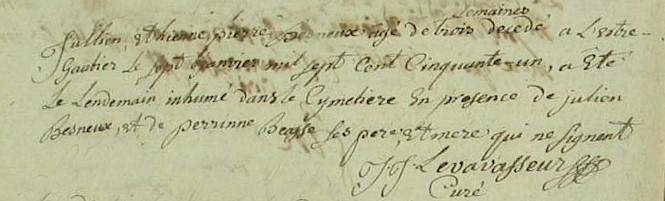 Semaines
Jullien, Ethienne pierre Besneux agé de trois decedé a L'estre-
Gautier Le sept Janvier mil sept Cent Cinquante-un, a Eté
Le Lendemain inhumé dans le Cymetiere En presence de julien
Besneux, Et de perrinne Beasse ses pere, Et mere qui ne signent
Levavasseur
Curé